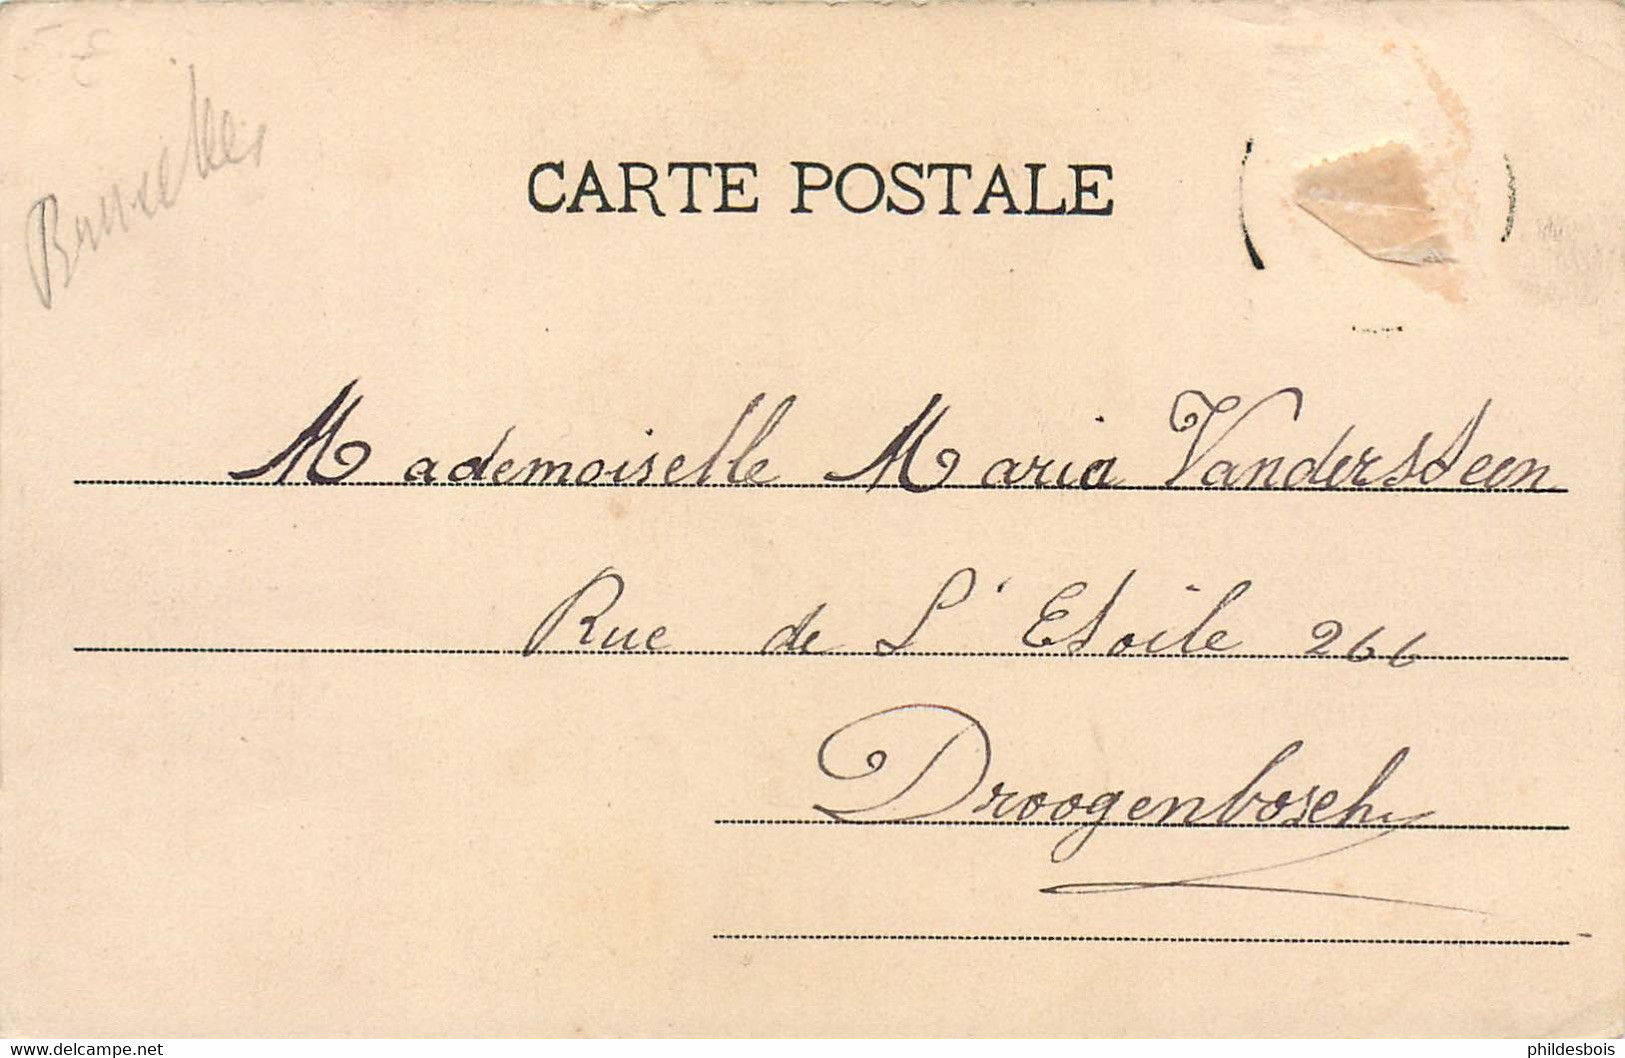 Bruxelles
CARTE POSTALE
Mademoiselle Maria Vandersteen
Rue de L'Etoile 266
Droogenbosch
www.delcampe.net
phildesbois